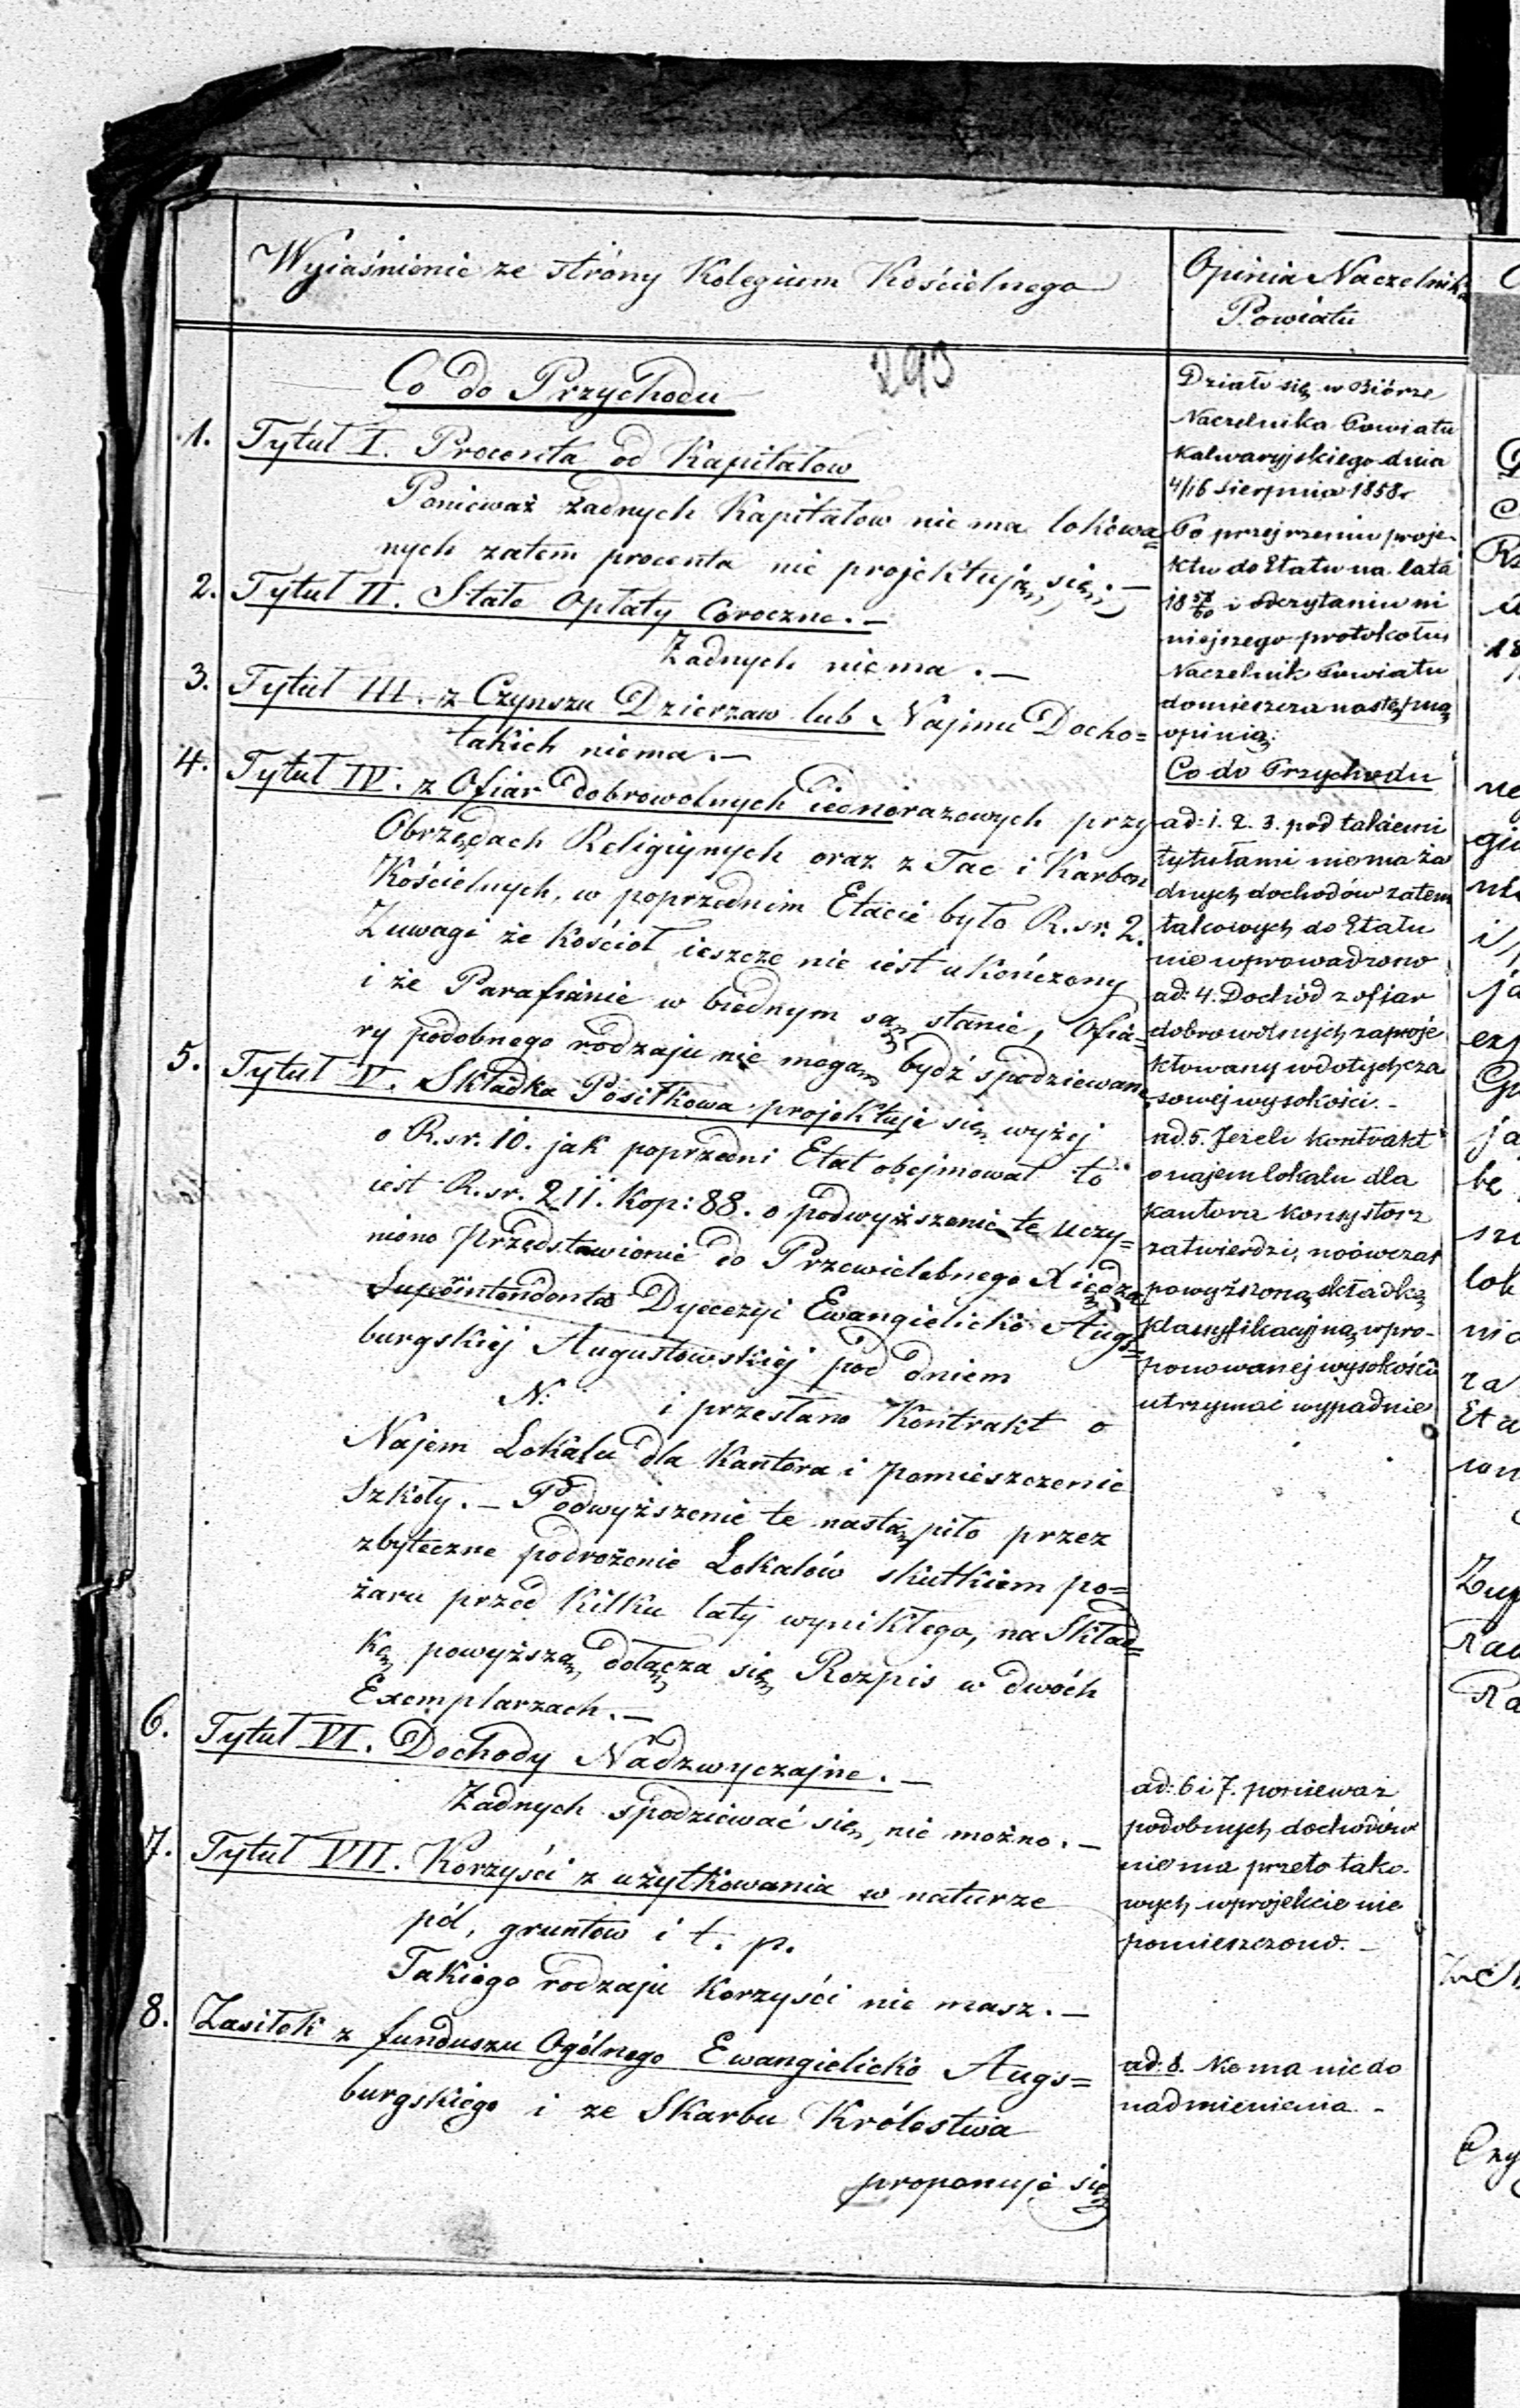 Wyiaśnienie ze stróny Kolegium Kościelnego
293
Co do Przychodu
1. Tytuł I. Procenta od Kapitałow
Ponieważ żadnych Kapitałow nie ma lokowa=
nych zatem procenta nie projektują się.—
2. Tytuł II. Stałe Opłaty Coroczne.—
Żadnych niema.—
3. Tytuł III. z Czynszu Dzierzaw lub Najmu Docho=
takich niema.—
4. Tytuł IV. z Ofiar dobrowolnych iednorazowych przy
Obrzędach Religiynych oraz z Tac i Karbon
Kościelnych, w poprzednim Etacie było R.sr. 2.
Zuwagi że Kościoł ieszcze nie iest ukończony
i że Parafianie w biednym są stanie, Ofia=
ry podobnego rodzaju nie mogą bydź spodziewane
5. Tytuł V. Składka Posiłkowa projektuje się wyżej
o R.sr. 10. jak poprzedni Etat obejmował to
iest R.sr. 211. Kop: 88. o podwyższenie te uczy=
niono przedstawienie do Przewielebnego Xiędza
Superintendenta Dyecezyi Ewangielicko Augs=
burgskiej Augustowskiej pod dniem
N: i przesłano Kontrakt o
Najem Lokalu dla Kantora i pomieszczenie
Szkoły.— Podwyższenie te nastąpiło przez
zbyteczne podrożenie Lokalów skutkiem po=
żaru przed kilku laty wynikłego, na Skład=
kę powyższą dołącza się Rozpis w dwóch
Exemplarzach.—
6. Tytuł VI. Dochody Nadzwyczajne.—
Żadnych spodziewać się, nie można.—
7. Tytuł VII. Korzyści z użytkowania w naturze
pól, gruntow i t. p.
Takiego rodzaju korzyści nie masz.—
8. Zasiłek z funduszu Ogólnego Ewangielicko Augs=
burgskiego i ze Skarbu Królestwa
proponuje się
Opinia Naczelnika
Powiatu
Działo się w Biórze
Naczelnika Powiatu
Kalwaryjskiego dnia
4/16 Sierpnia 1858r
Po przejrzeniu proje-
ktu do Etatu na lata
18 58/60 i odczytaniu ni
niejszego protokołu
Naczelnik Powiatu
domieszcza następną
opinią:
Co do Przychodu
ad: 1. 2. 3. pod takiemi
tytułami niema ża
dnych dochodów zatem
takowych do Etatu
nie wprowadzono
ad: 4. Dochód z ofiar
dobrowolnych zaproje
ktowany wdotychcza
sowéj wysokości.-
ad. 5. Jeżeli kontrakt
o najem lokalu dla
kantora konsystorz
zatwierdzi, noówczas
powyższoną składką
klassyfikacyjną wpro-
ponowanej wysokości
utrzymać wypadnie
ad: 6 i 7. ponieważ
podobnych dochodów
niema przeto tako-
wych wprojekcie nie
pomieszczono.-
ad: 8. Nie ma nic do
nadmienienia.-